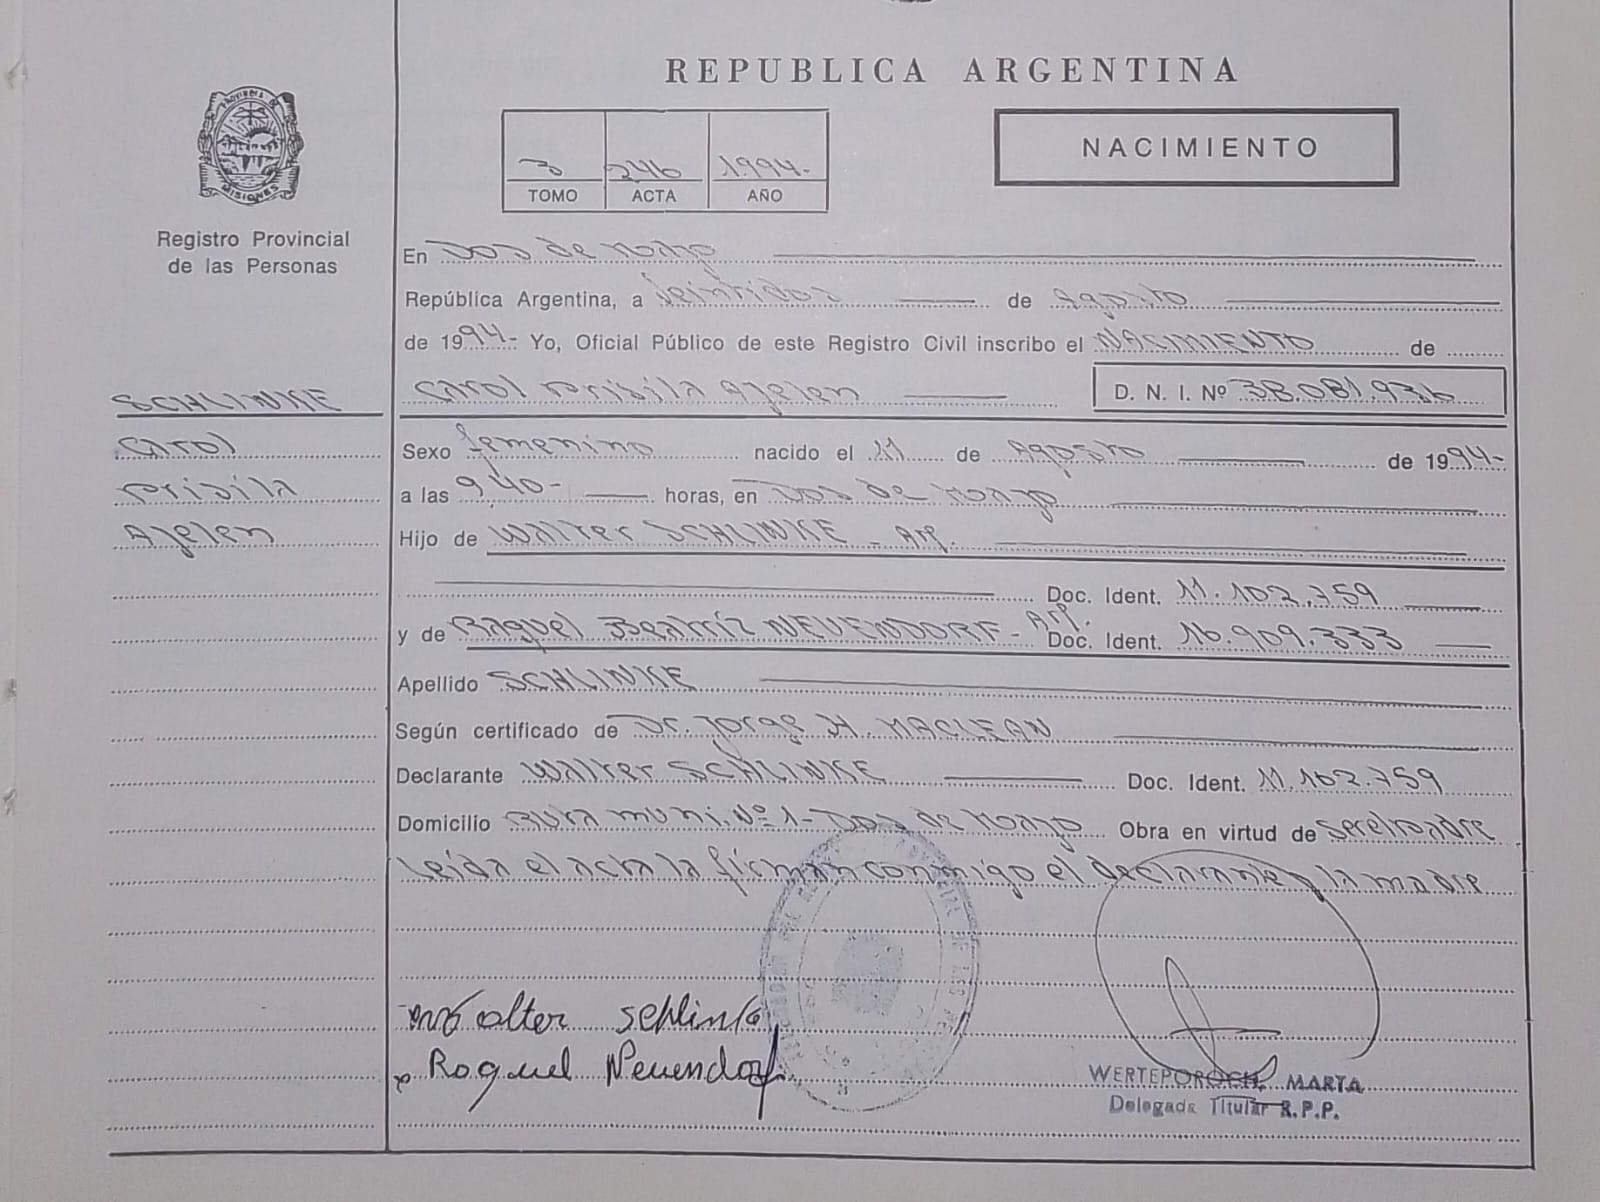 REPUBLICA ARGENTINA
PROVINCIA DE
MISIONES
Registro Provincial
de las Personas
3 246 1.994.-
TOMO ACTA AÑO
NACIMIENTO
En Dos de Mayo
República Argentina, a Veintidos de Agosto
de 1994- Yo, Oficial Público de este Registro Civil inscribo el NACIMIENTO de
Carol Prisila Ajelen D. N. I. Nº 38.081.936
SCHLINKE
Carol
Prisila
Ajelen
Sexo femenino nacido el 11 de Agosto de 1994-
a las 9,40- horas, en Dos de Mayo
Hijo de Walter SCHLINKE - Arg.
Doc. Ident. 11.102.759
y de Raquel Beatríz NEUENDORF - Arg. Doc. Ident. 16.909.333
Apellido SCHLINKE
Según certificado de Dr. Jorge H. MACLEAN
Declarante Walter SCHLINKE Doc. Ident. 11.102.759
Domicilio Ruta muni. Nº 1- Dos de Mayo Obra en virtud de ser el padre
Leída el acta la firman conmigo el declarante y la madre
Walter Schlinke
Raquel Neuendorf
WERTEPOROCH, MARTA
Delegada Titular R.P.P.